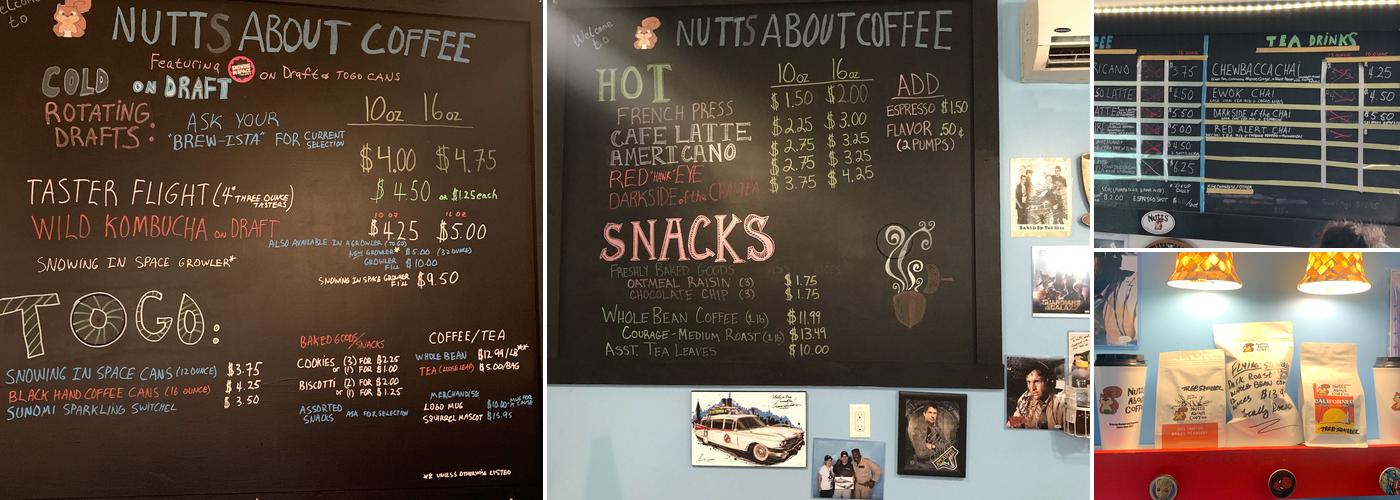 Welcome to
NUTTS ABOUT COFFEE
Featuring SNOWING IN SPACE on Draft & TOGO CANS
COLD ON DRAFT
ROTATING DRAFTS: ASK YOUR "BREW-ISTA" FOR CURRENT SELECTION
10oz 16oz
$4.00 $4.75
TASTER FLIGHT (4 THREE OUNCE TASTERS) $4.50 or $1.25 each
10 oz 16 oz
WILD KOMBUCHA on DRAFT $4.25 $5.00
ALSO AVAILABLE IN A GROWLER (TO GO)
NEW GROWLER* $5.00 (32 OUNCE)
GROWLER FILL $10.00
SNOWING IN SPACE GROWLER*
SNOWING IN SPACE GROWLER FILL $9.50
TOGO:
SNOWING IN SPACE CANS (12 OUNCE) $3.75
BLACK HAND COFFEE CANS (16 OUNCE) $4.25
SUNOMI SPARKLING SWITCHEL $3.50
BAKED GOODS/SNACKS
COOKIES (3) FOR $2.25
or (1) FOR $1.00
BISCOTTI (2) FOR $2.00
or (1) FOR $1.25
ASSORTED SNACKS ASK FOR SELECTION
COFFEE/TEA
WHOLE BEAN $12.99/LB**
TEA (LOOSE LEAF) $5.00/BAG
MERCHANDISE
LOGO MUG $10.00
SQUIRREL MASCOT $15.95
** UNLESS OTHERWISE LISTED
Welcome to
NUTTS ABOUT COFFEE
HOT 10oz 16oz
FRENCH PRESS $1.50 $2.00
CAFE LATTE $2.25 $3.00
AMERICANO $2.75 $3.25
RED "HAWK" EYE $2.75 $3.25
DARKSIDE of the CHAI TEA $3.75 $4.25
ADD
ESPRESSO $1.50
FLAVOR .50¢
(2 PUMPS)
SNACKS
FRESHLY BAKED GOODS
OATMEAL RAISIN (3) $1.75
CHOCOLATE CHIP (3) $1.75
WHOLE BEAN COFFEE (1 lb) $11.99
COURAGE-MEDIUM ROAST (1 lb) $13.49
ASST. TEA LEAVES $10.00
SAVED BY THE BELL
GUARDIANS OF THE GALAXY
EE
RICANO 3.75
SO LATTE 4.50
5.50
5.00
4.50
6.25
$2.00 ESPRESSO SHOT
TEA DRINKS
CHEWBACCA CHAI 4.25
EWOK CHAI 4.50
DARKSIDE of the CHAI 5.50
RED ALERT CHAI
NUTTS
NUTTS ABOUT COFFEE
TREE SMOKER
NUTTS ABOUT COFFEE
FLYING
Dark Roast
Whole Bean
$13.9
Locally Roast
NUTTS ABOUT COFFEE
CALIFORNIA
TREE SMOKER